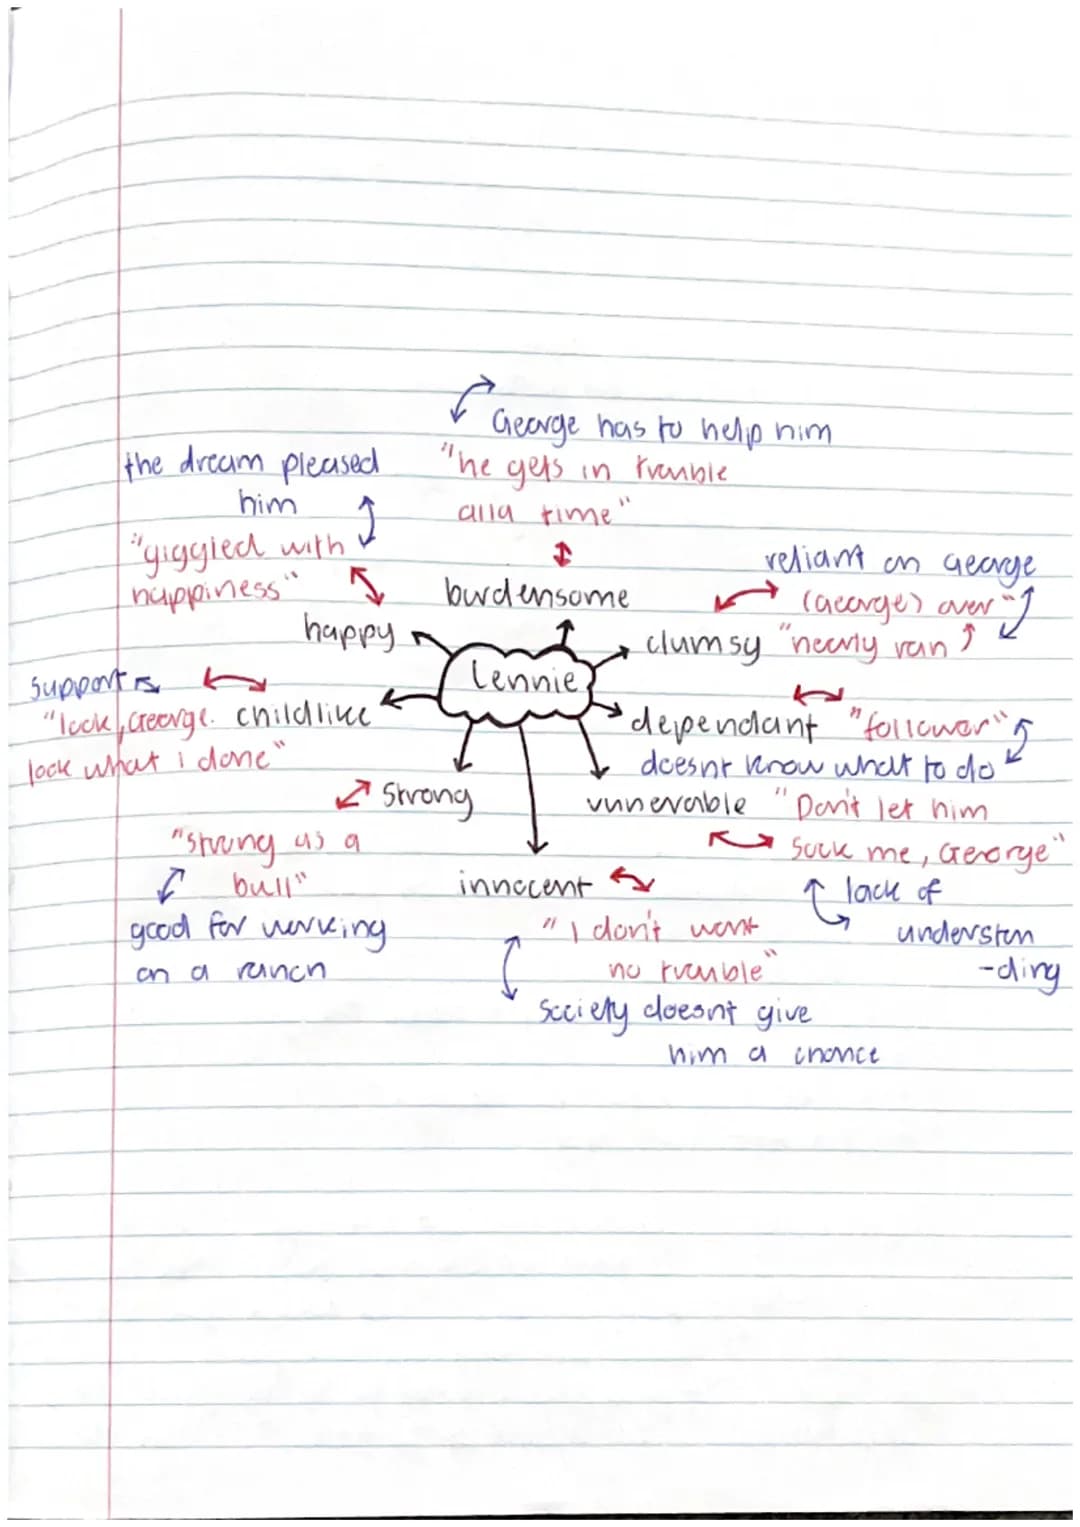 George has to help him
"he gets in trouble
alla time"
burdensome
the dream pleased
him
"giggled with
happiness"
happy
reliant on George
(George) over"
clumsy "nearly ran
Lennie
support
"look, George.
look what i done"
childlike
dependant "follower"
doesnt know what to do
strong
"strong as a
bull"
good for working
on a ranch
vunerable "Don't let him
sock me, George"
lack of
understan
-ding
innocent
"I don't want
no trouble"
society doesnt give
him a chance